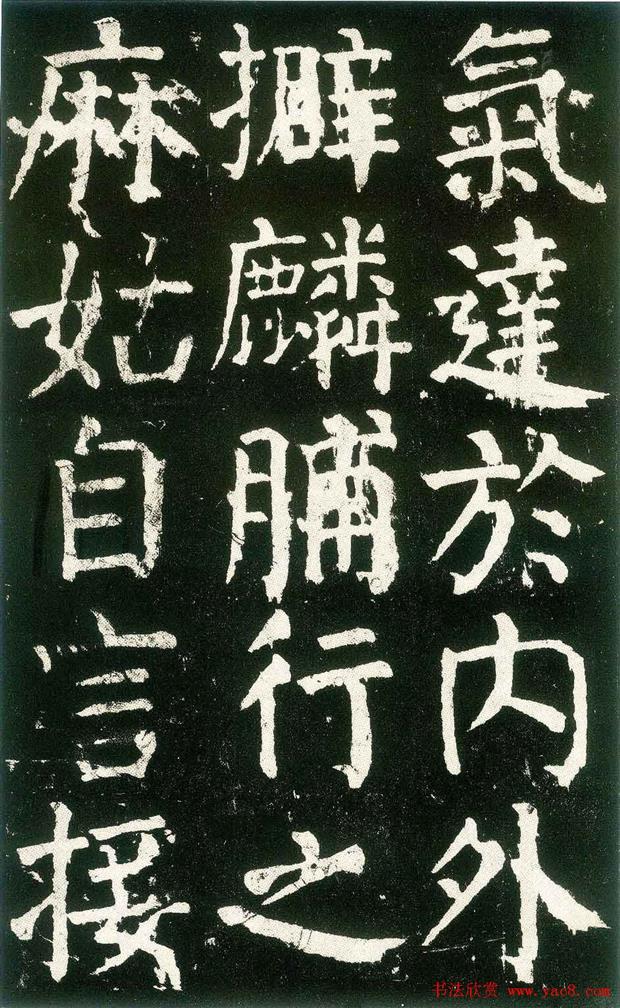 氣達於内外
擗麟脯行之
麻姑自言接
书法欣赏 www.yac8.com